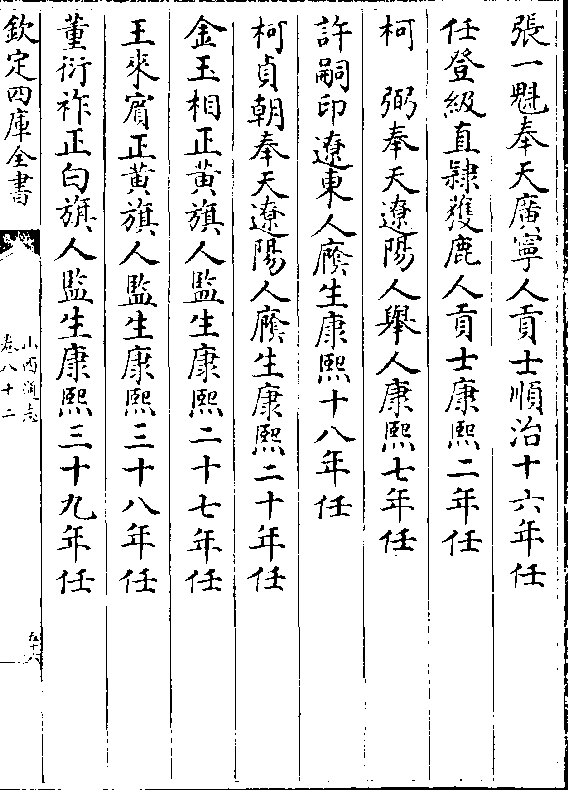 張一魁奉天廣寧人貢士順治十六年任
任登級直隸獲鹿人貢士康熙二年任
柯　弼奉天遼陽人舉人康熙七年任
許嗣印遼東人廕生康熙十八年任
柯貞朝奉天遼陽人廕生康熙二十年任
金玉相正黃旗人監生康熙二十七年任
王來賔正黃旗人監生康熙三十八年任
董衍祚正白旗人監生康熙三十九年任
欽定四庫全書
山西通志
卷八十二
五十六